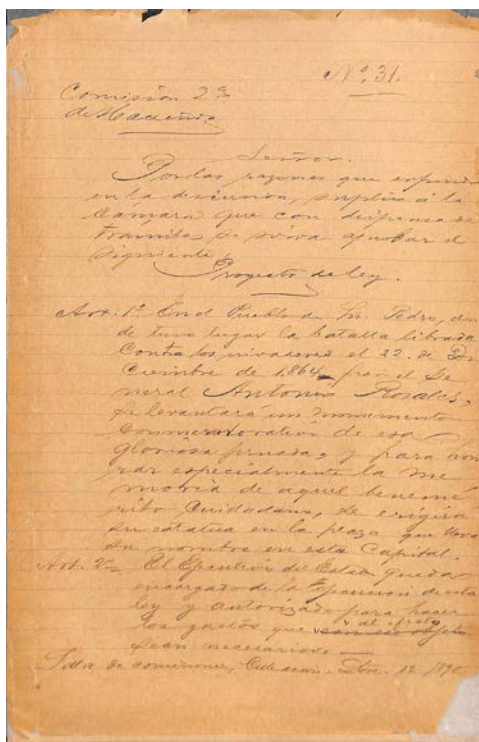 Nº 31.
Comisión 2ª
de Hacienda
Señor.
Por las razones que expondré
en la discusion, suplico á la
Cámara que con dispensa de
trámites se sirva aprobar el
siguiente
Proyecto de ley.
Art. 1º En el Pueblo de Sn. Pedro, don
de tuvo lugar la batalla librada
contra los invasores el 22 de Di
ciembre de 1,864 por el Ge
neral Antonio Rosales,
se levantará un monumento
conmemorativo de esa
gloriosa jornada; y para hon
rar especialmente la me
moria de aquel benemé
rito Ciudadano, se erigirá
su estatua en la plaza que lleva
su nombre en esta Capital.
Art. 2º El Ejecutivo del Estado queda
encargado de la ejecucion de esta
ley y autorizado para hacer
los gastos que al efecto
sean necesarios.
Sala de comisiones, Culiacan, Dbre. 12 1890